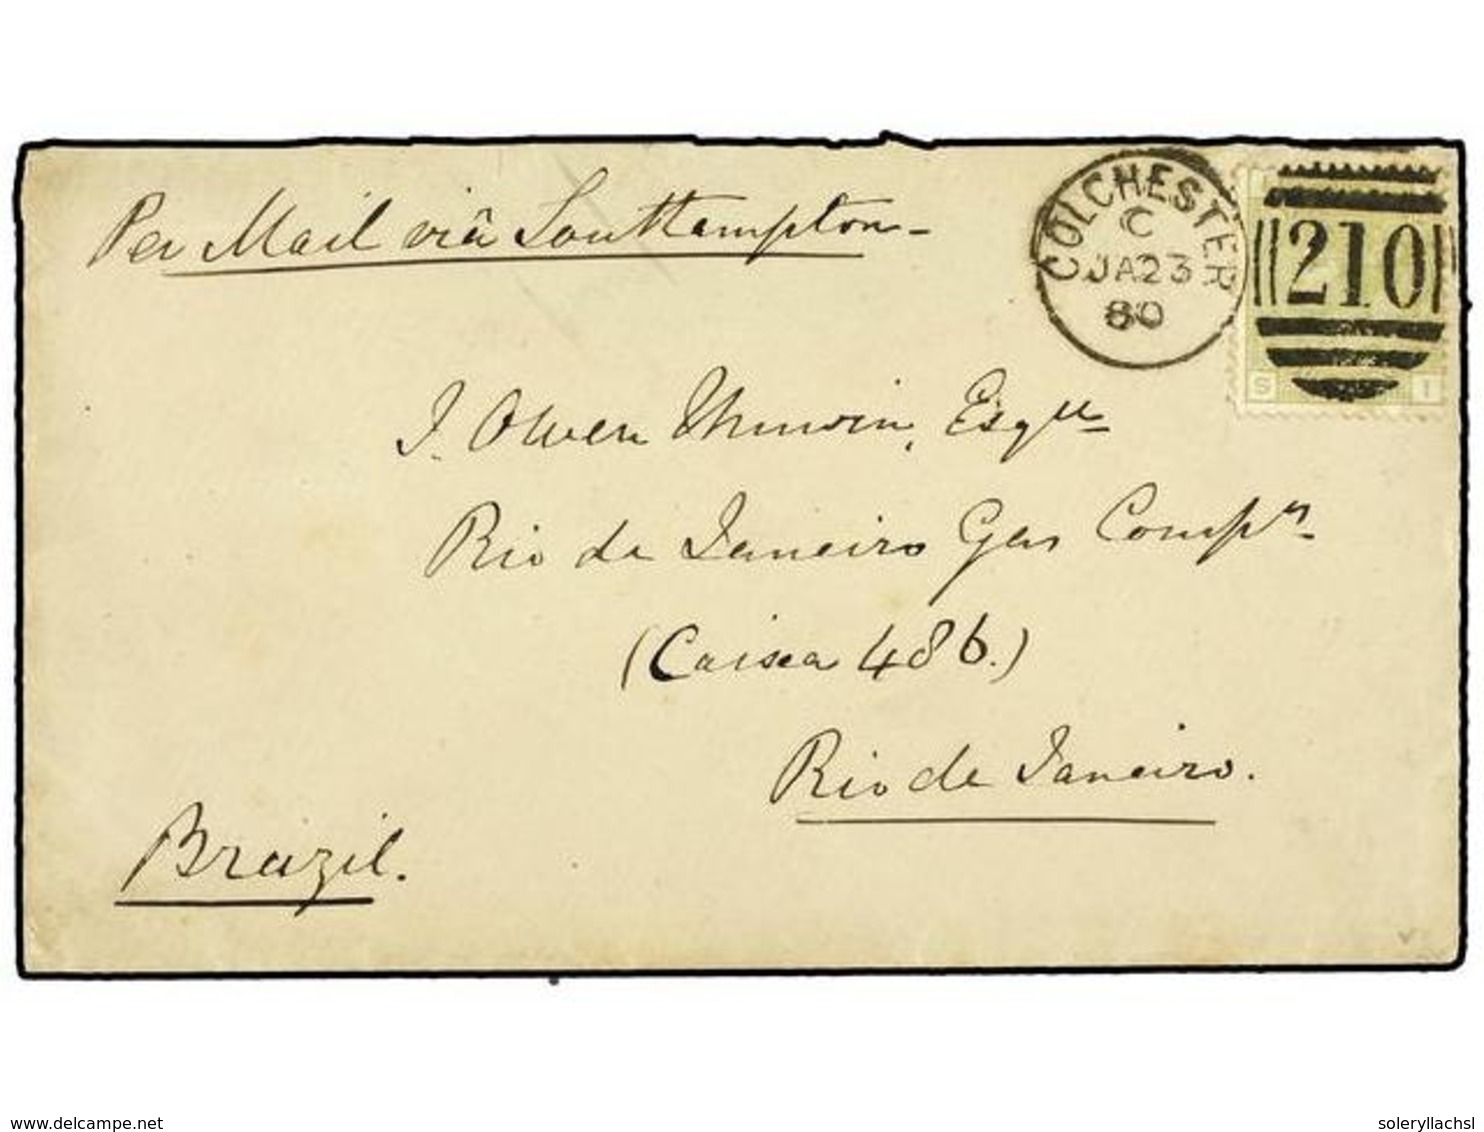 Per Mail viâ Southampton
COLCHESTER
C
JA 23
80
210
S I
J. Owen Unwin, Esqre
Rio de Janeiro Gas Compy
(Caixa 486.)
Rio de Janeiro.
Brazil.
delcampe.net
soleryllachsl